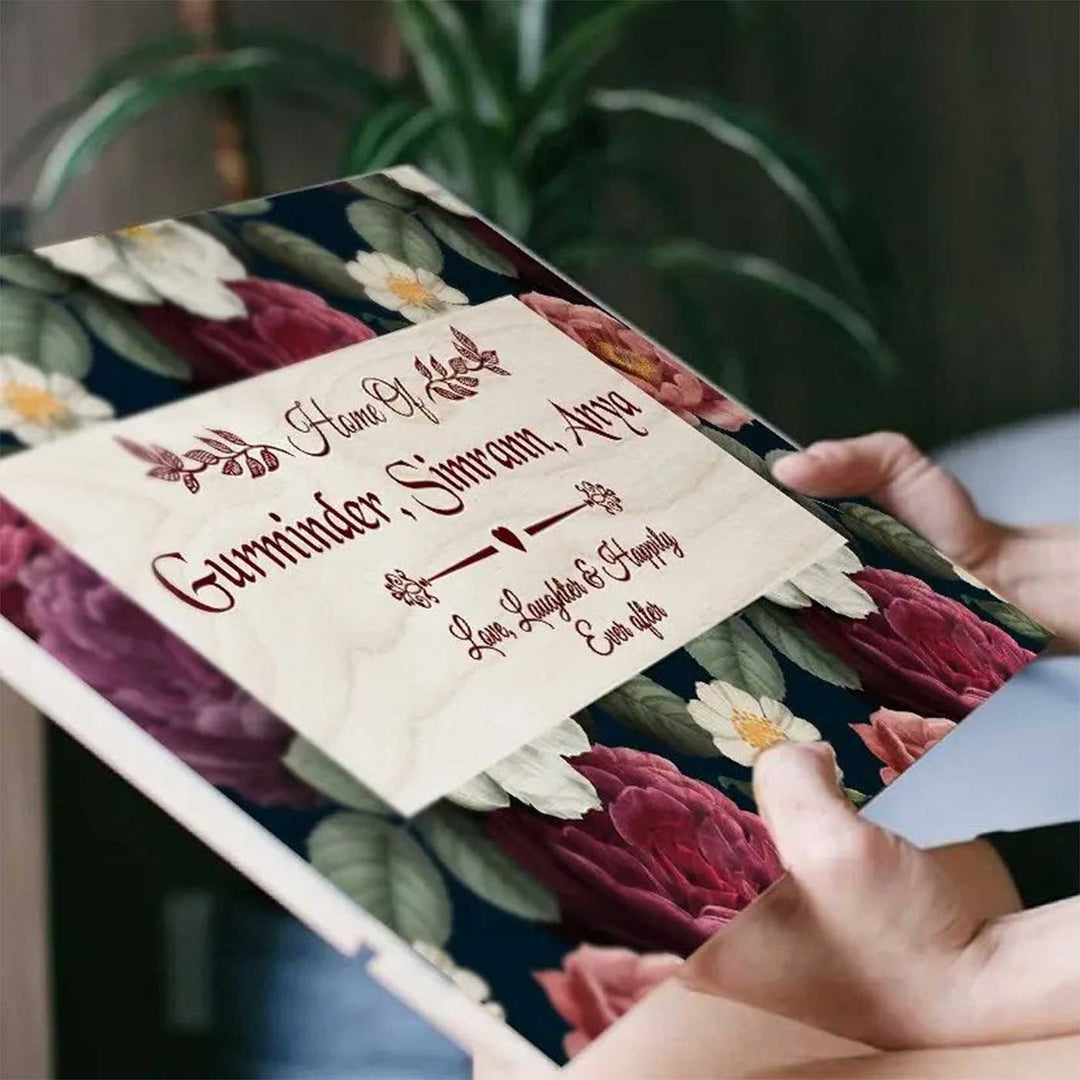 Home Of
Gurminder, Simrann, Anya
Love, Laughter & Happily
Ever after